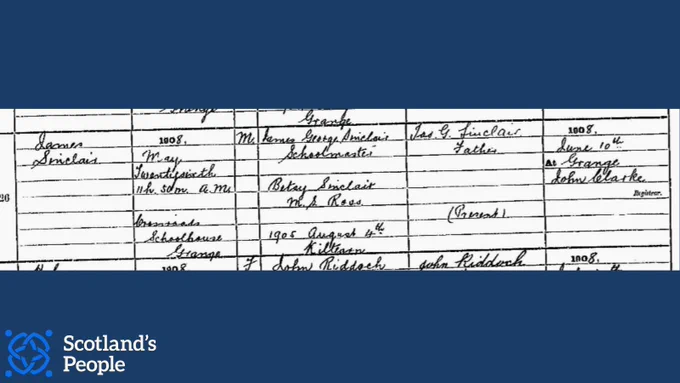 Grange
26
James
Sinclair
1908.
May
Twentysixth
11h. 50m. A.M.
Crossroads
Schoolhouse
Grange
M.
James George Sinclair
Schoolmaster
Betsy Sinclair
M.S Ross
1905 August 4th
Kiltearn
Jas. G. Sinclair
Father
(Present)
1908.
June 10th
At Grange
John Clarke
Registrar.
1908
F
John Riddoch
John Riddoch
1908.
Scotland's
People